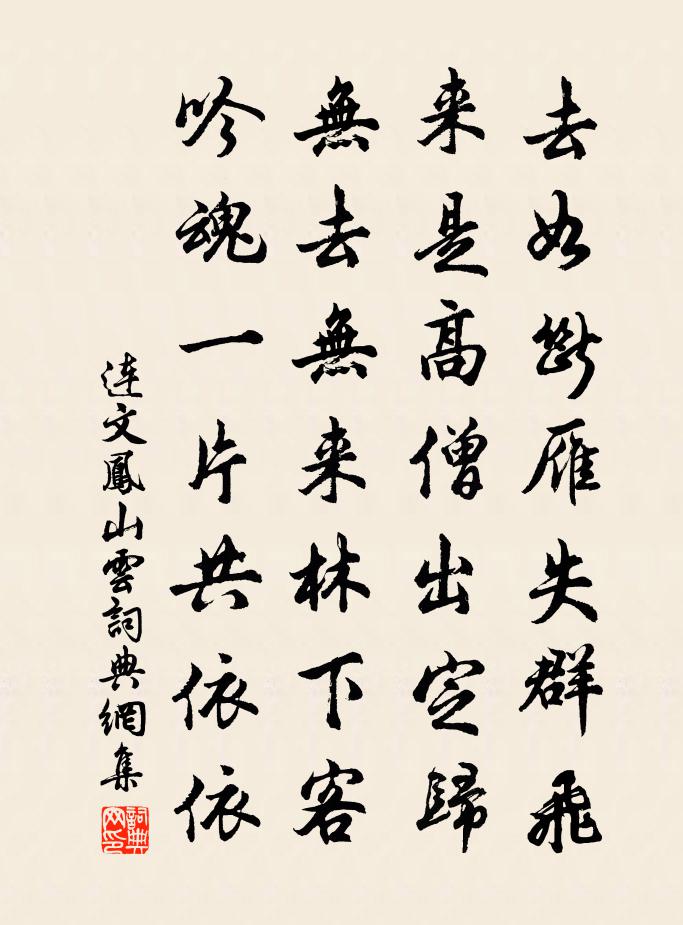 去如斷雁失群飛
来是高僧出定歸
無去無来林下客
吟魂一片共依依
連文鳳山雲詞典網集
詞典網印